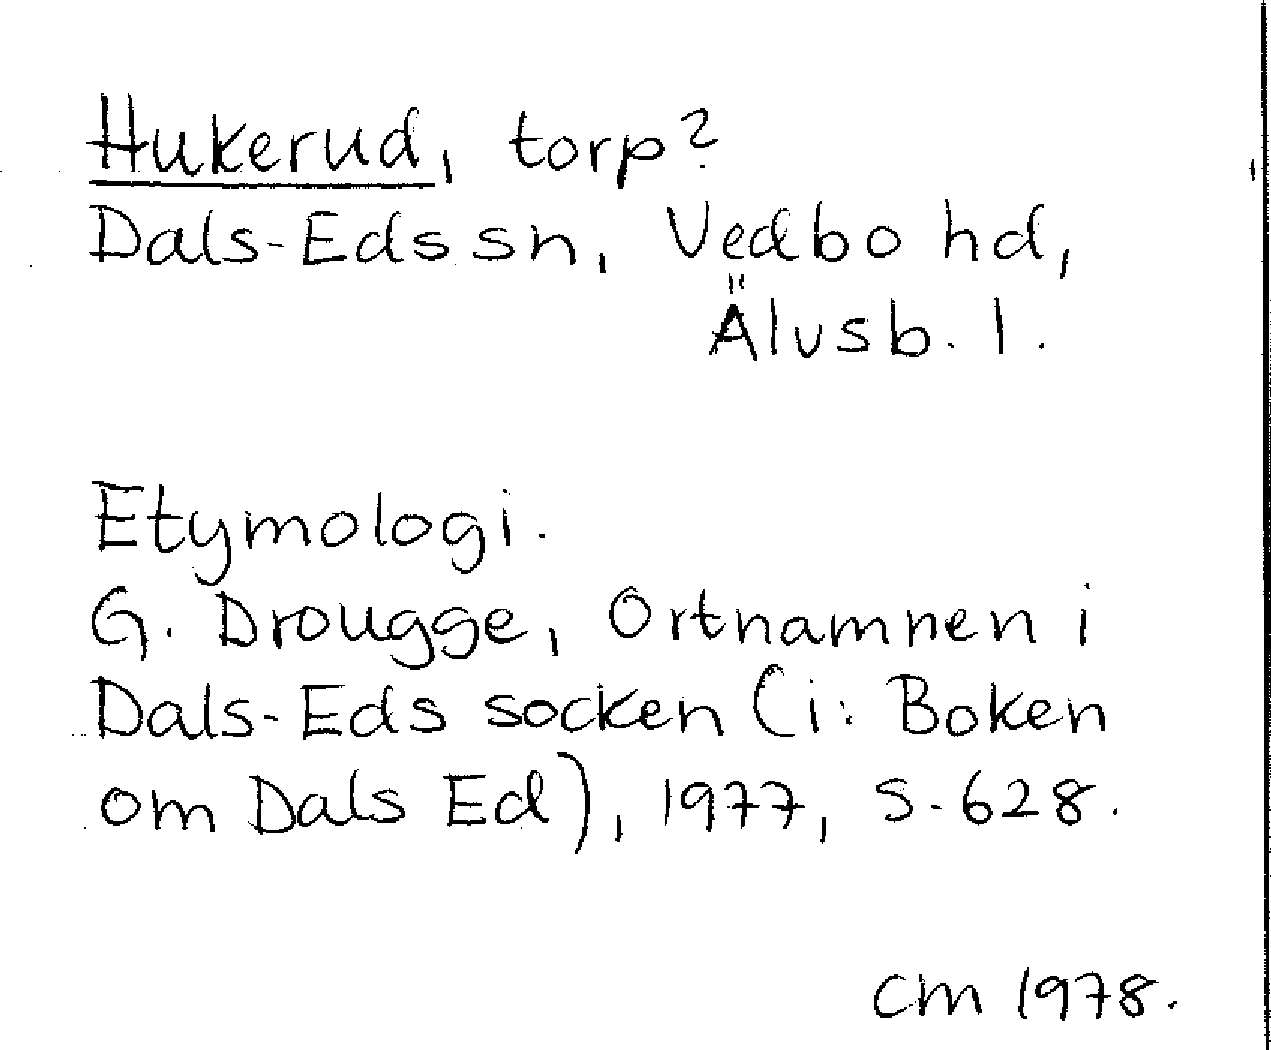 Hukerud, torp?
Dals-Eds sn, Vedbo hd,
Älvsb. l.
Etymologi.
G. Drougge, Ortnamnen i
Dals-Eds socken (i: Boken
om Dals Ed), 1977, s. 628.
CM 1978.